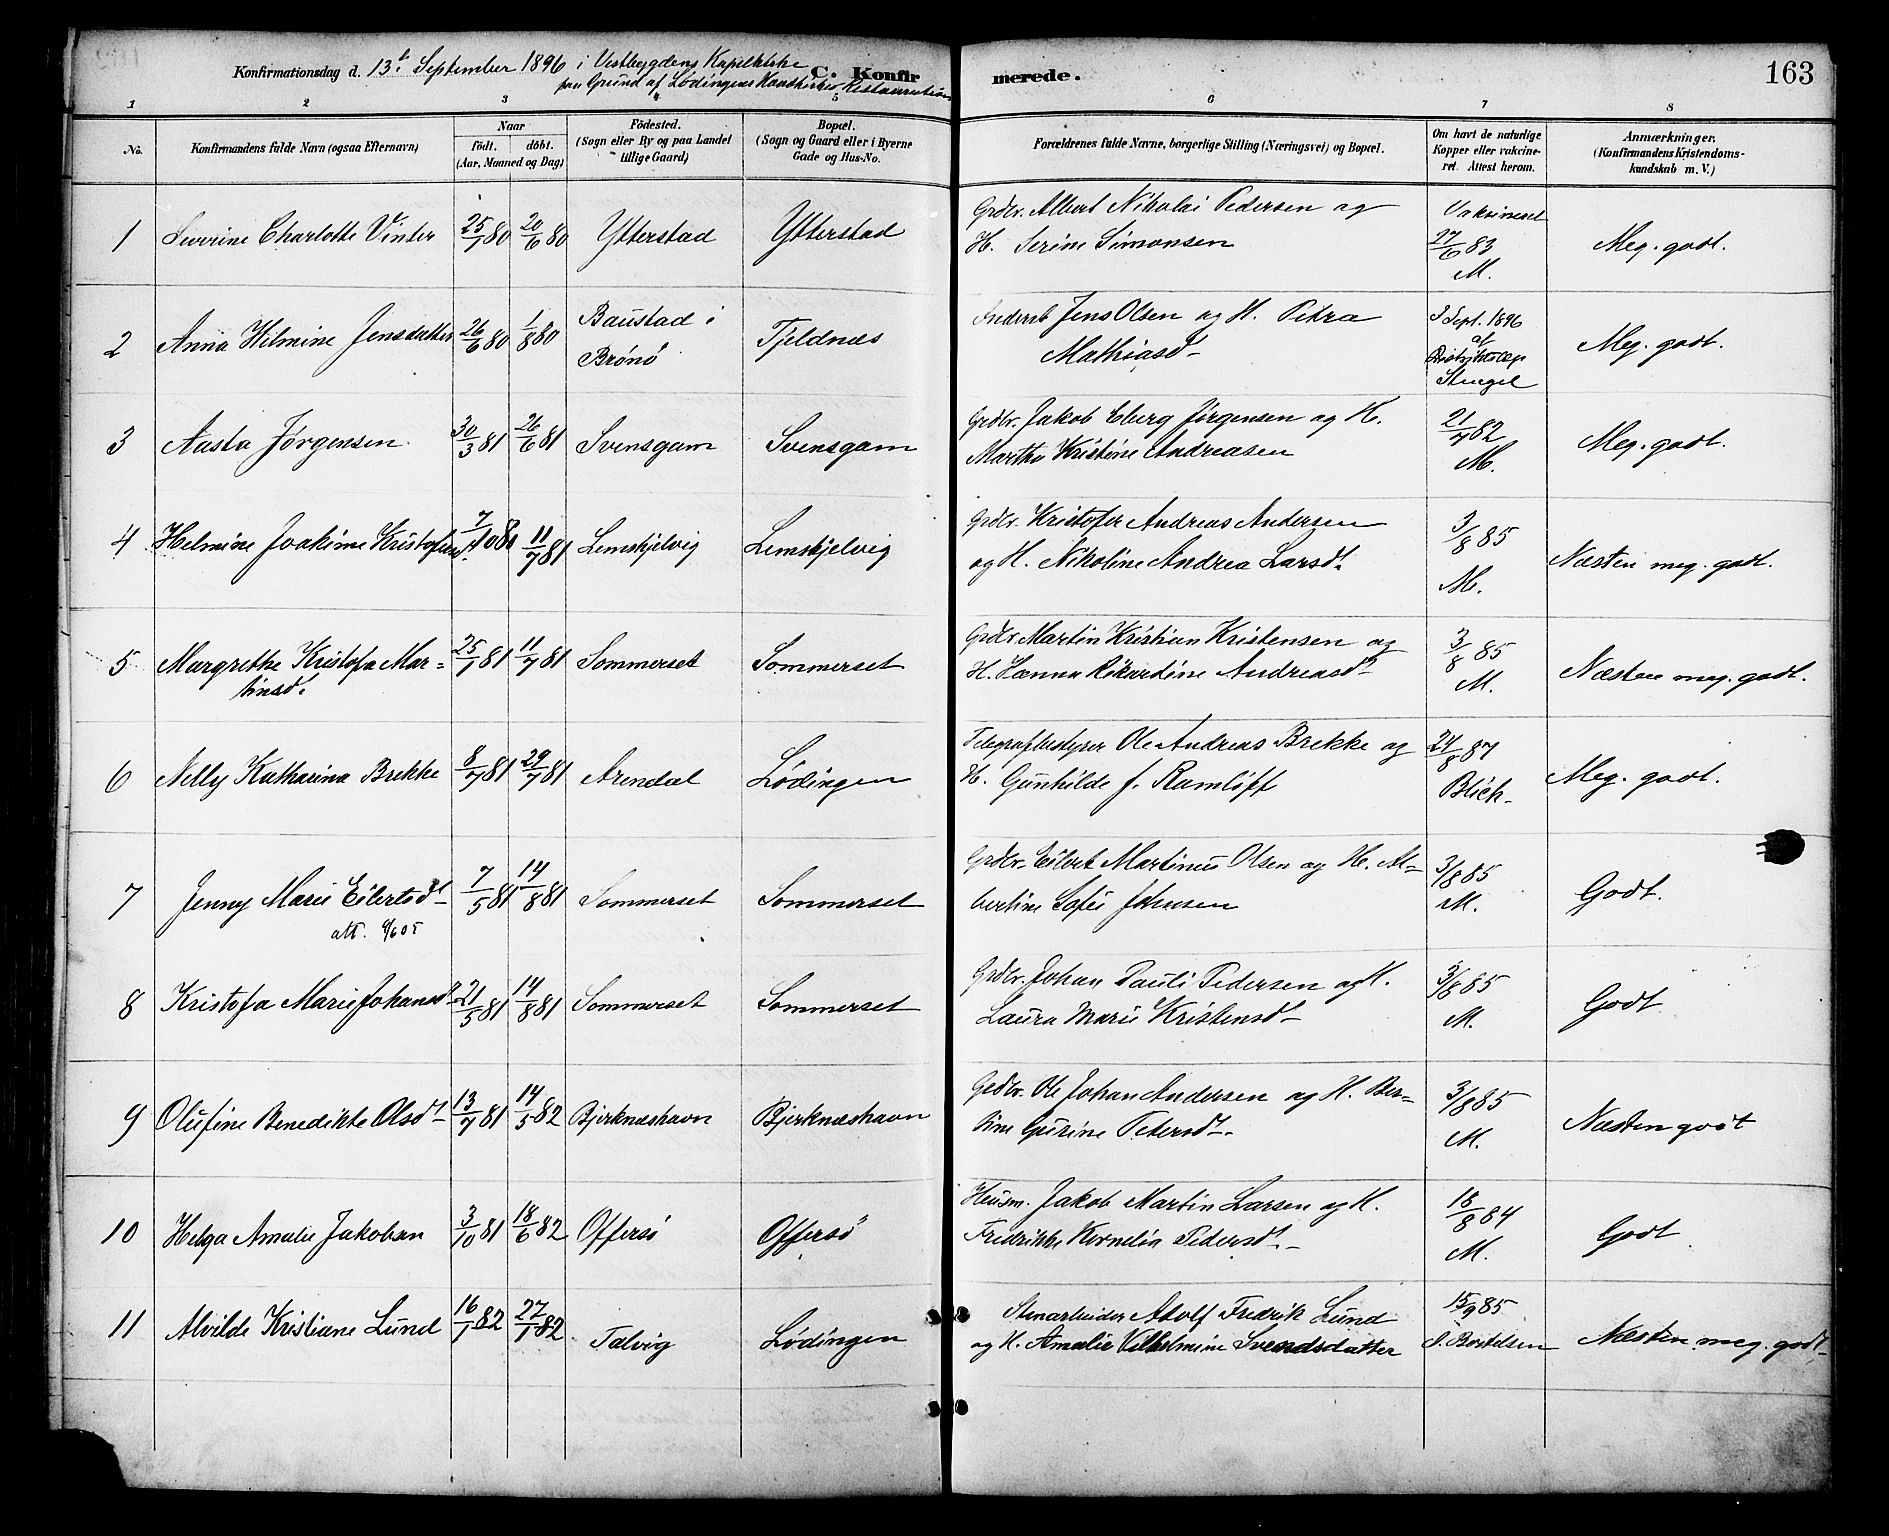 Konfirmationsdag d. 13de September 1896 i Vestbygdens Kapelkirke
paa Grund af Lødingens Hovedkirkes Restauration
C. Konfirmerede.
163
1 2 3 4 5 6 7 8
No.
Konfirmandens fulde Navn (ogsaa Efternavn)
Naar
födt. döbt.
(Aar, Maaned og Dag)
Födested.
(Sogn eller By og paa Landet
tillige Gaard)
Bopæl.
(Sogn og Gaard eller i Byerne
Gade og Hus-No.
Forældrenes fulde Navne, borgerlige Stilling (Næringsvei) og Bopæl.
Om havt de naturlige
Kopper eller vakcine-
ret. Attest herom.
Anmærkninger,
(Konfirmandens Kristendoms-
kundskab m. V.)
1 Severine Charlotte Vinter 25/1 80 20/6 80 Ytterstad Ytterstad
Grdbr. Albert Nikolai Pedersen og
H. Serine Simonsen
Vaksineret
27/6 83
M.
Meg. godt.
2 Anna Helmine Jensdatter 26/6 80 1/8 80
Baustad i
Brönö
Tjeldnæs
Jens Olsen og H. Petra
Mathiasd
3 Sept. 1896
af
Distriktslæge
Stengel
Meg. godt.
3 Aasta Jørgensen 30/3 81 26/6 81 Svensgam Svensgam
Grdbr. Jakob Eberg Jørgensen og H.
Martha Kristine Andreasen
21/7 82
M.
Meg. godt.
4 Helmine Joakime Kristofersd. 7/10 80 11/7 81 Lemskjelvig Lemskjelvig
Grdbr. Kristofer Andreas Andersen
og H. Nikoline Andrea Larsdt.
3/8 85
M.
Næsten meg. godt.
5 Margrethe Kristofa Mar-
tinsd.
25/1 81 11/7 81 Sommerset Sommerset
Grdbr Martin Kristian Kristensen og
H. Hanna Rikardine Andreasdt
3/8 85
M.
Næsten meg. godt.
6 Nelly Katharina Brekke 8/7 81 29/7 81 Arendal Lödingen
Telegrafbestyrer Ole Andreas Brekke og
H. Gunhilde f. Ramlöff
24/8 87
Blich
Meg. godt.
7 Jenny Marie Eilertsdt
att. 9/6 05
7/5 81 14/8 81 Sommerset Sommerset
Grdbr. Eilert Martinus Olsen og H. Al-
bertine Sofie Johnsen
3/8 85
M.
Godt.
8 Kristofa Marie Johansdt 21/5 81 14/8 81 Sommerset Sommerset
Grdbr. Johan Pauli Pedersen og H.
Laura Marie Kristensdt
3/8 85
M.
Godt
9 Olufine Benedikte Olsdt 13/7 81 14/5 82 Bjerknæshavn Bjerknæshavn
Grdbr. Ole Johan Andersen og H. Ber-
tine Gurine Petersdt.
3/8 85
M.
Næsten godt
10 Helga Amalie Jakobsen 3/10 81 18/6 82 Offersö Offersö
Husm. Jakob Martin Larsen og H.
Fredrikke Kornelia Pedersdt.
18/8 84
M.
Godt
11 Alvilde Kristiane Lund 16/1 82 27/1 82 Talvig Lödingen
Stenarbeider Adolf Fredrik Lund
og H. Amalie Vilhelmine Svendsdatter
15/9 85
S. Bertelsen
Næsten meg. godt